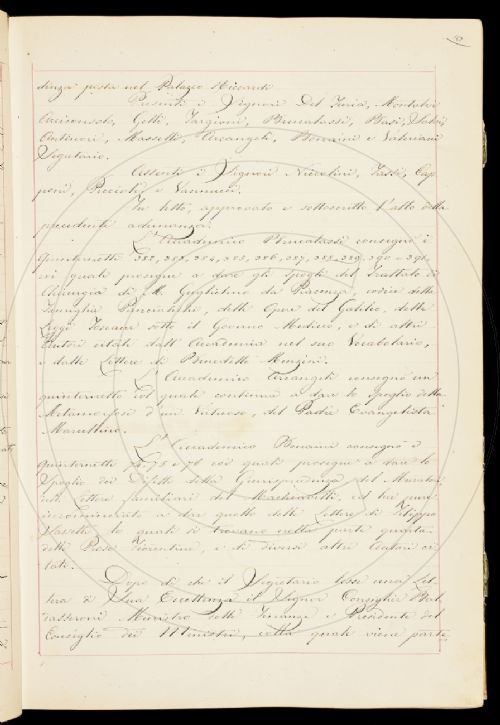 denza posta nel Palazzo Riccardi
Presenti i Signori Del Furia, Montalvi
Gelli, Targioni, Brucalassi, Basi,
Antinori, Masselli, Arcangeli, Bonaini e Valeriani
Segretario.
Assenti i Signori Niccolini, Tassi, Cap
poni, Puccioli e Vannucci.
Fu letto, approvato e sottoscritto l'atto della
precedente adunanza.
L'Accademico Brucalassi consegnò i
quinternetti 382, 383, 384, 385, 386, 387, 388, 389, 390 e 391,
coi quali prosegue a dare gli spogli del Trattato di
Chirurgia di M. Guglielmo da Piacenza, codice della
Famiglia Panciatichi, delle Opere del Galileo, delle
Leggi Toscane sotto il Governo Mediceo, e di altri
Autori citati dall'Accademia nel suo Vocabolario,
e dalle Lettere di Benedetto Menzini.
L'Accademico Arcangeli consegnò un
quinternetto col quale continua a dare lo spoglio della
Metamorfosi d'un Virtuoso, del Padre Evangelista
Marcellino.
L'Accademico Bonaini consegnò i
quinternetti 74, 75 e 76 coi quali prosegue a dare lo
Spoglio dei Difetti della Giurisprudenza del Muratori
delle Lettere familiari del Machiavelli, ed ha pure
incominciato a dare quello delle Lettere di Filippo
Sassetti le quali si trovano nella parte quarta
delle Prose Fiorentine, e di diversi altri Autori ci
tati.
Dopo di che il Segretario lesse una Let
tera di Sua Eccellenza il Signor Consigliere Bal
dasseroni Ministro delle Finanze e Presidente del
Consiglio dei Ministri, colla quale viene parte